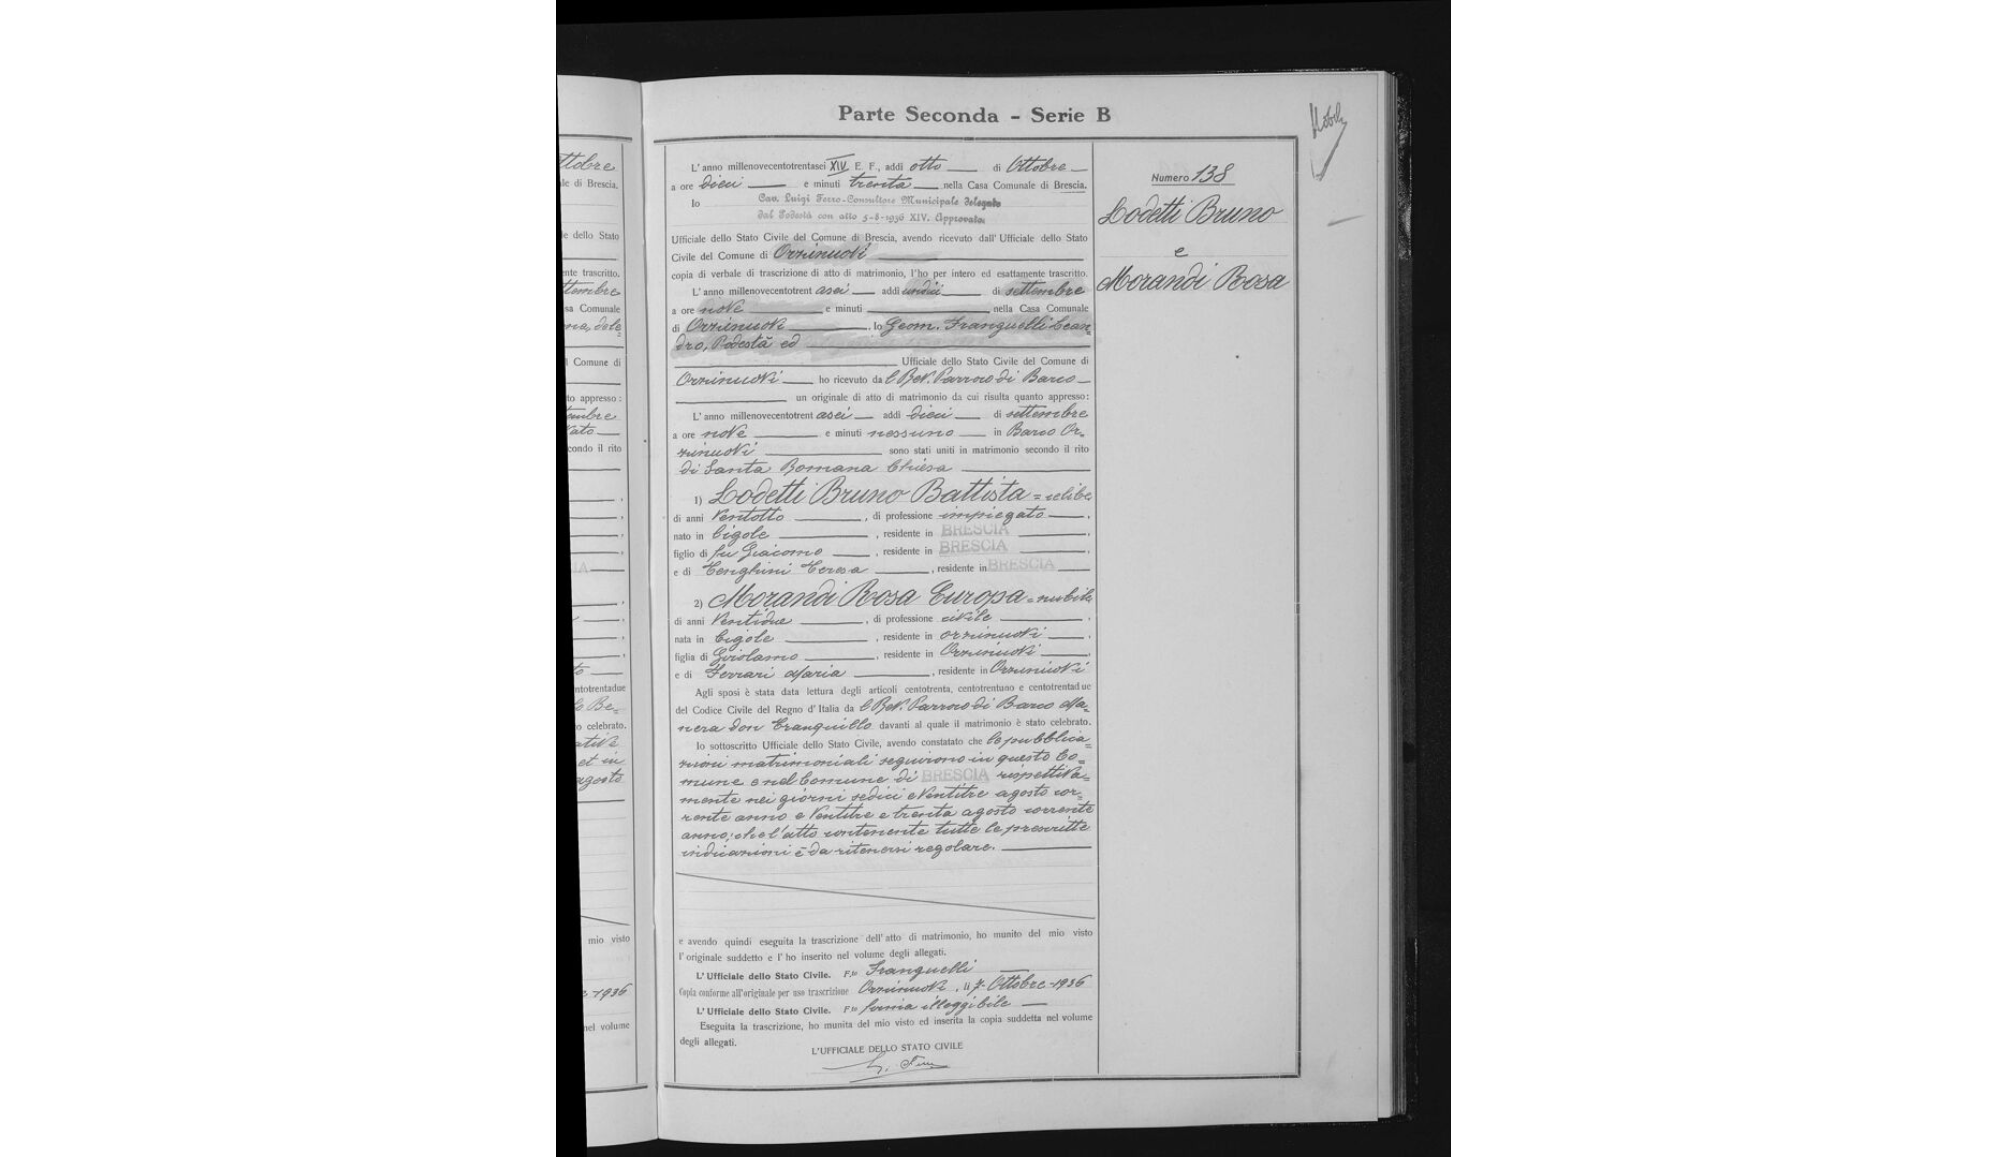 Parte Seconda - Serie B
L'anno millenovecentotrentasei XIV E. F., addi otto di Ottobre
a ore dieci e minuti trenta nella Casa Comunale di Brescia.
Io Cav. Luigi Ferro-Consultore Municipale delegato
dal Podestà con atto 5-8-1936 XIV. Approvato.
Ufficiale dello Stato Civile del Comune di Brescia, avendo ricevuto dall'Ufficiale dello Stato
Civile del Comune di Orzinuovi
copia di verbale di trascrizione di atto di matrimonio, l'ho per intero ed esattamente trascritto.
L'anno millenovecentotrent asei addi undici di settembre
a ore nove e minuti nella Casa Comunale
di Orzinuovi, Io Geom. Franguelli Lean=
dro, Podestà ed
Ufficiale dello Stato Civile del Comune di
Orzinuovi ho ricevuto da l Rev. Parroco di Barco
un originale di atto di matrimonio da cui risulta quanto appresso:
L'anno millenovecentotrent asei addi dieci di settembre
a ore nove e minuti nessuno in Barco Or=
zinuovi sono stati uniti in matrimonio secondo il rito
di Santa Romana Chiesa
1) Lodetti Bruno Battista = celibe
di anni Ventotto, di professione impiegato,
nato in Cigole, residente in BRESCIA,
figlio di fu Giacomo, residente in BRESCIA,
e di Tenghini Teresa, residente in BRESCIA
2) Morandi Rosa Europa = nubile
di anni Ventidue, di professione civile,
nata in Cigole, residente in Orzinuovi,
figlia di Girolamo, residente in Orzinuovi,
e di Ferrari Maria, residente in Orzinuovi
Agli sposi è stata data lettura degli articoli centotrenta, centotrentuno e centotrentadue
del Codice Civile del Regno d'Italia da l Rev. Parroco di Barco Ma=
nera don Tranquillo davanti al quale il matrimonio è stato celebrato.
Io sottoscritto Ufficiale dello Stato Civile, avendo constatato che le pubblica=
zioni matrimoniali seguirono in questo Co=
mune e nel Comune di BRESCIA rispettiva=
mente nei giorni sedici e Ventitre agosto cor=
rente anno e Ventitre e trenta agosto corrente
anno; che l'atto contenente tutte le prescritte
indicazioni è da ritenersi regolare.
e avendo quindi eseguita la trascrizione dell'atto di matrimonio, ho munito del mio visto
l'originale suddetto e l'ho inserito nel volume degli allegati.
L'Ufficiale dello Stato Civile. F.to Franguelli
Copia conforme all'originale per uso trascrizione Orzinuovi, li 7-Ottobre-1936
L'Ufficiale dello Stato Civile. F.to firma illeggibile
Eseguita la trascrizione, ho munita del mio visto ed inserita la copia suddetta nel volume
degli allegati.
L'UFFICIALE DELLO STATO CIVILE
Numero 138
Lodetti Bruno
e
Morandi Rosa